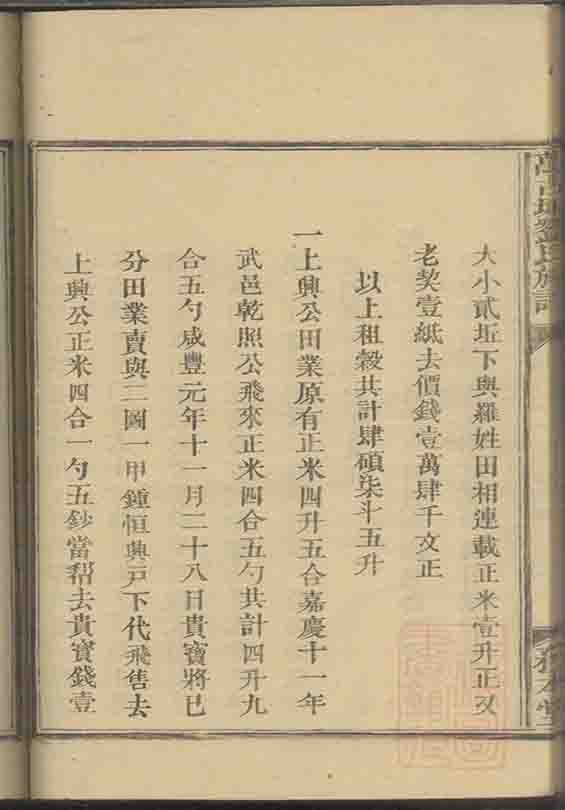 大小貳坵下與羅姓田相連載正米壹升正又
老契壹紙去價錢壹萬肆千文正
以上租穀共計肆碩柒斗五升
一上興公田業原有正米四升五合嘉慶十一年
武邑乾照公飛來正米四合五勺共計四升九
合五勺咸豐元年十一月二十八日貴寶將已
分田業賣與三圖一甲鍾恒興戶下代飛售去
上興公正米四合一勺五鈔當帮去貴寶錢壹
劉氏族譜